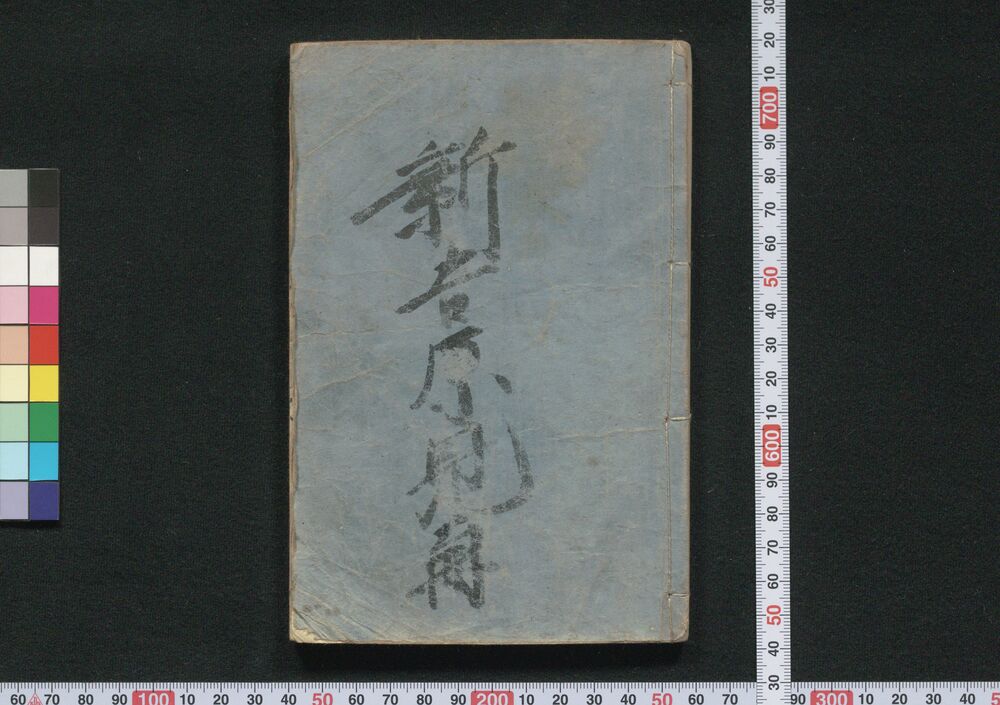 新吉原
30 20 10 700 90 80 70 60 50 40 30 20 10 600 90 80 70 60 50 40 30
60 70 80 90 100 10 20 30 40 50 60 70 80 90 200 10 20 30 40 50 60 70 90 300 10 20 30 40